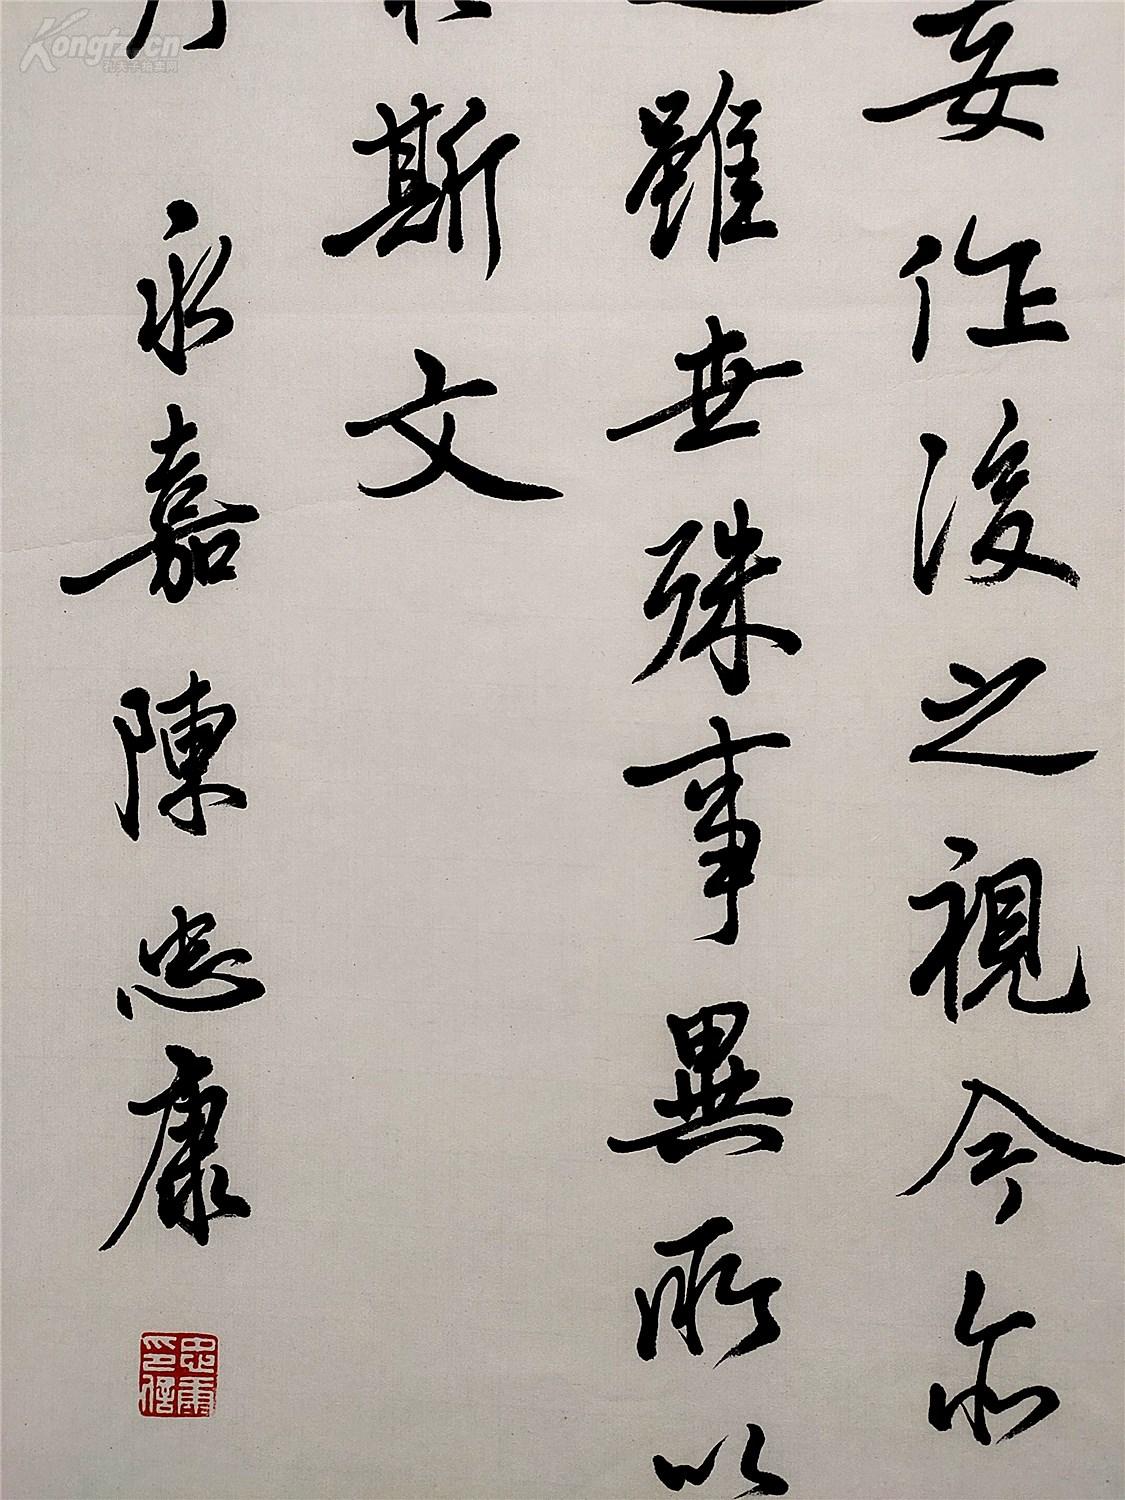 妄作後之視今亦
雖世殊事異所以
斯文
永嘉陳忠康
忠康印信
Kongfz.cn
孔夫子拍卖网